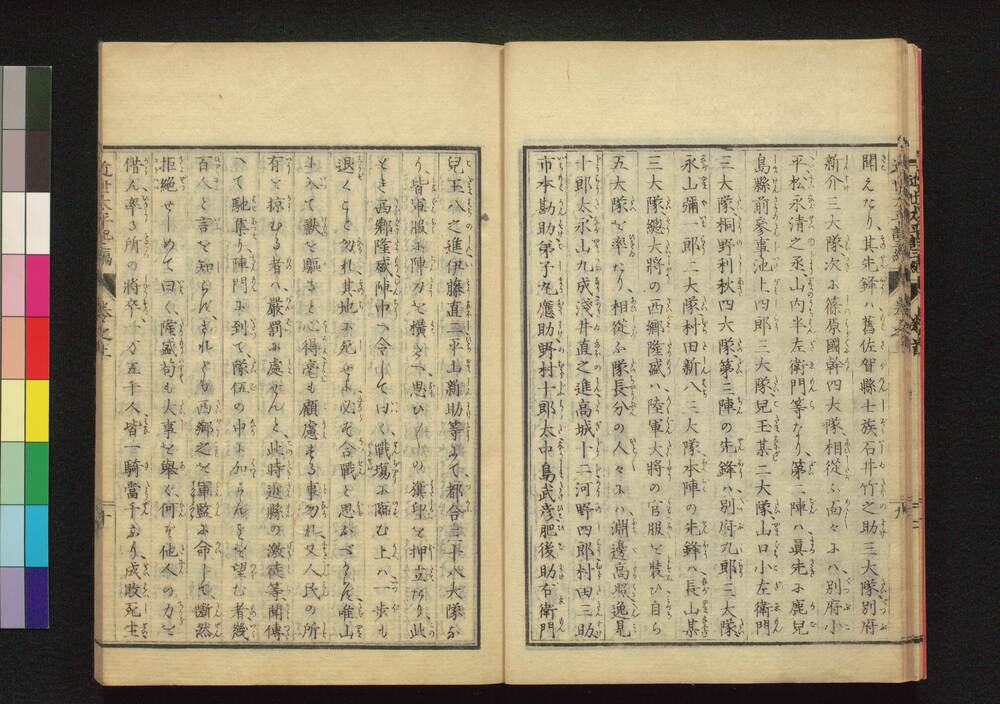 聞えたり、其先鋒ハ舊佐賀縣士族石井竹之助三大隊別府
新介三大隊、次ふ篠原國幹四大隊相從ふ面々ふハ別府小
平松永清之丞山内半左衛門等なり、第二陣ハ眞先ふ鹿兒
島縣前參事池上四郎三大隊兒玉某二大隊山口小左衛門
三大隊桐野利秋四六大隊、第三陣の先鋒ハ別府九郎三大隊
永山彌一郎二大隊村田新八三大隊本陣の先鋒ハ長山某
三大隊總大將の西郷隆盛ハ陸軍大將の官服を裝ひ自ら
五大隊を率なり、相從ふ隊長分の人々ふハ淵邊高照逸見
十郎太永山九成淺井直之進高城十二河野四郎村田三助
市本勘助弟子丸應助野村十郎太中島武彦肥後助右衛門
兒玉八之進伊藤直二平山新助等ふて都合三十八大隊な
り、皆軍服ふ陣刀を横へ思ひ〳〵の籏印を押立たり、此
とき西郷隆盛陣中へ令して曰く戰塲ふ臨む上ハ一歩も
退くこと勿れ其地ふ死せよ必そ合戰と思ふべからん唯山
ふ入て獸を驅ると心得毫も顧慮する事勿れ又人民の所
有を掠むる者ハ嚴罰ふ處せんと此時近縣の激徒等聞傳
へて馳集り陣門ふ到て隊伍の中ふ加らんを望む者幾
百人と言を知らんされども西郷之を軍監ふ命して斷然
拒絶せしめて曰く隆盛苟も大事を擧ぐ何ぞ他人の力を
借ん率る所の將卒一万五千人皆一騎當千なり、成敗死生
近世太平記二編
巻之上
十